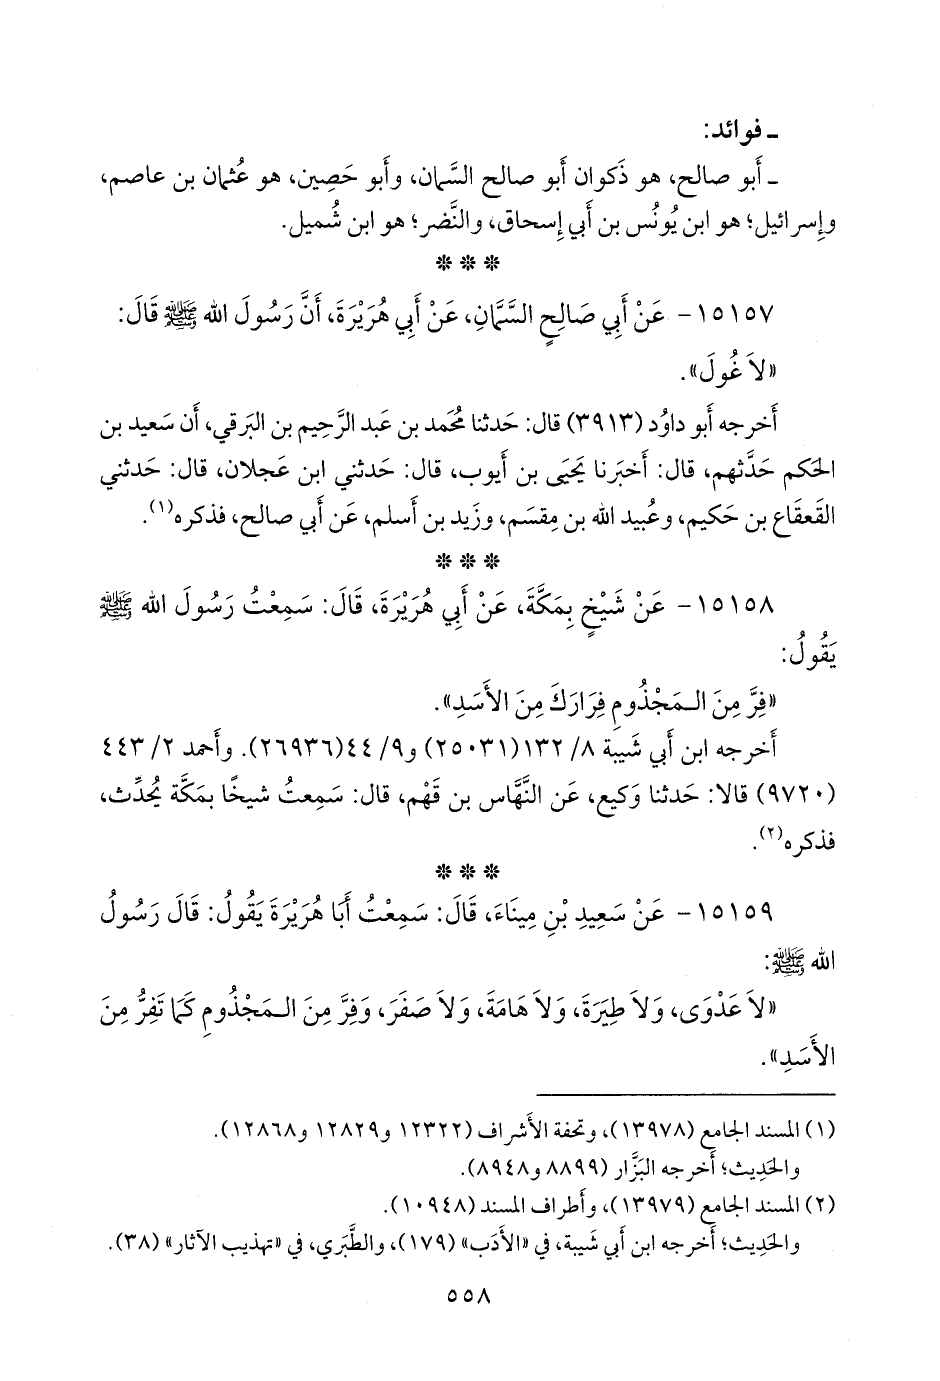 ـ فوائد:
ـ أَبو صالح، هو ذَكوان أَبو صالح السَّمان، وأَبو حَصِين، هو عُثمان بن عاصم،
وإِسرائيل؛ هو ابن يُونُس بن أَبي إِسحاق، والنَّضر؛ هو ابن شُميل.
* * *
١٥١٥٧- عَنْ أَبِي صَالِحٍ السَّمَّانِ، عَنْ أَبِي هُرَيْرَةَ، أَنَّ رَسُولَ الله ﷺ قَالَ:
«لاَ غُولَ».
أَخرجه أَبو داوُد (٣٩١٣) قال: حَدثنا مُحَمد بن عَبد الرَّحِيم بن البَرقي، أَن سَعيد بن
الحَكم حَدَّثهم، قال: أَخبَرنا يَحيَى بن أَيوب، قال: حَدثني ابن عَجلان، قال: حَدثني
القَعقَاع بن حَكيم، وعُبيد الله بن مِقسَم، وزَيد بن أَسلم، عَن أَبي صالح، فذكره(١).
* * *
١٥١٥٨- عَنْ شَيْخٍ بِمَكَّةَ، عَنْ أَبِي هُرَيْرَةَ، قَالَ: سَمِعْتُ رَسُولَ الله ﷺ
يَقُولُ:
«فِرَّ مِنَ الـمَجْذُومِ فِرَارَكَ مِنَ الأَسَدِ».
أَخرجه ابن أَبي شَيبة ٨/ ١٣٢(٢٥٠٣١) و٩/ ٤٤(٢٦٩٣٦). وأَحمد ٢/ ٤٤٣
(٩٧٢٠) قالا: حَدثنا وَكيع، عَن النَّهَّاس بن قَهْم، قال: سَمِعتُ شيخًا بمَكَّة يُحَدِّث،
فذكره(٢).
* * *
١٥١٥٩- عَنْ سَعِيدِ بْنِ مِينَاءَ، قَالَ: سَمِعْتُ أَبَا هُرَيْرَةَ يَقُولُ: قَالَ رَسُولُ
الله ﷺ:
«لاَ عَدْوَى، وَلاَ طِيَرَةَ، وَلاَ هَامَةَ، وَلاَ صَفَرَ، وَفِرَّ مِنَ الـمَجْذُومِ كَمَا تَفِرُّ مِنَ
الأَسَدِ».
(١) المسند الجامع (١٣٩٧٨)، وتحفة الأَشراف (١٢٣٢٢ و١٢٨٢٩ و١٢٨٦٨).
والحَدِيث؛ أَخرجه البَزَّار (٨٨٩٩ و٨٩٤٨).
(٢) المسند الجامع (١٣٩٧٩)، وأَطراف المسند (١٠٩٤٨).
والحَدِيث؛ أَخرجه ابن أَبي شَيبة، في «الأَدَب» (١٧٩)، والطَّبَري، في «تهذيب الآثار» (٣٨).
٥٥٨